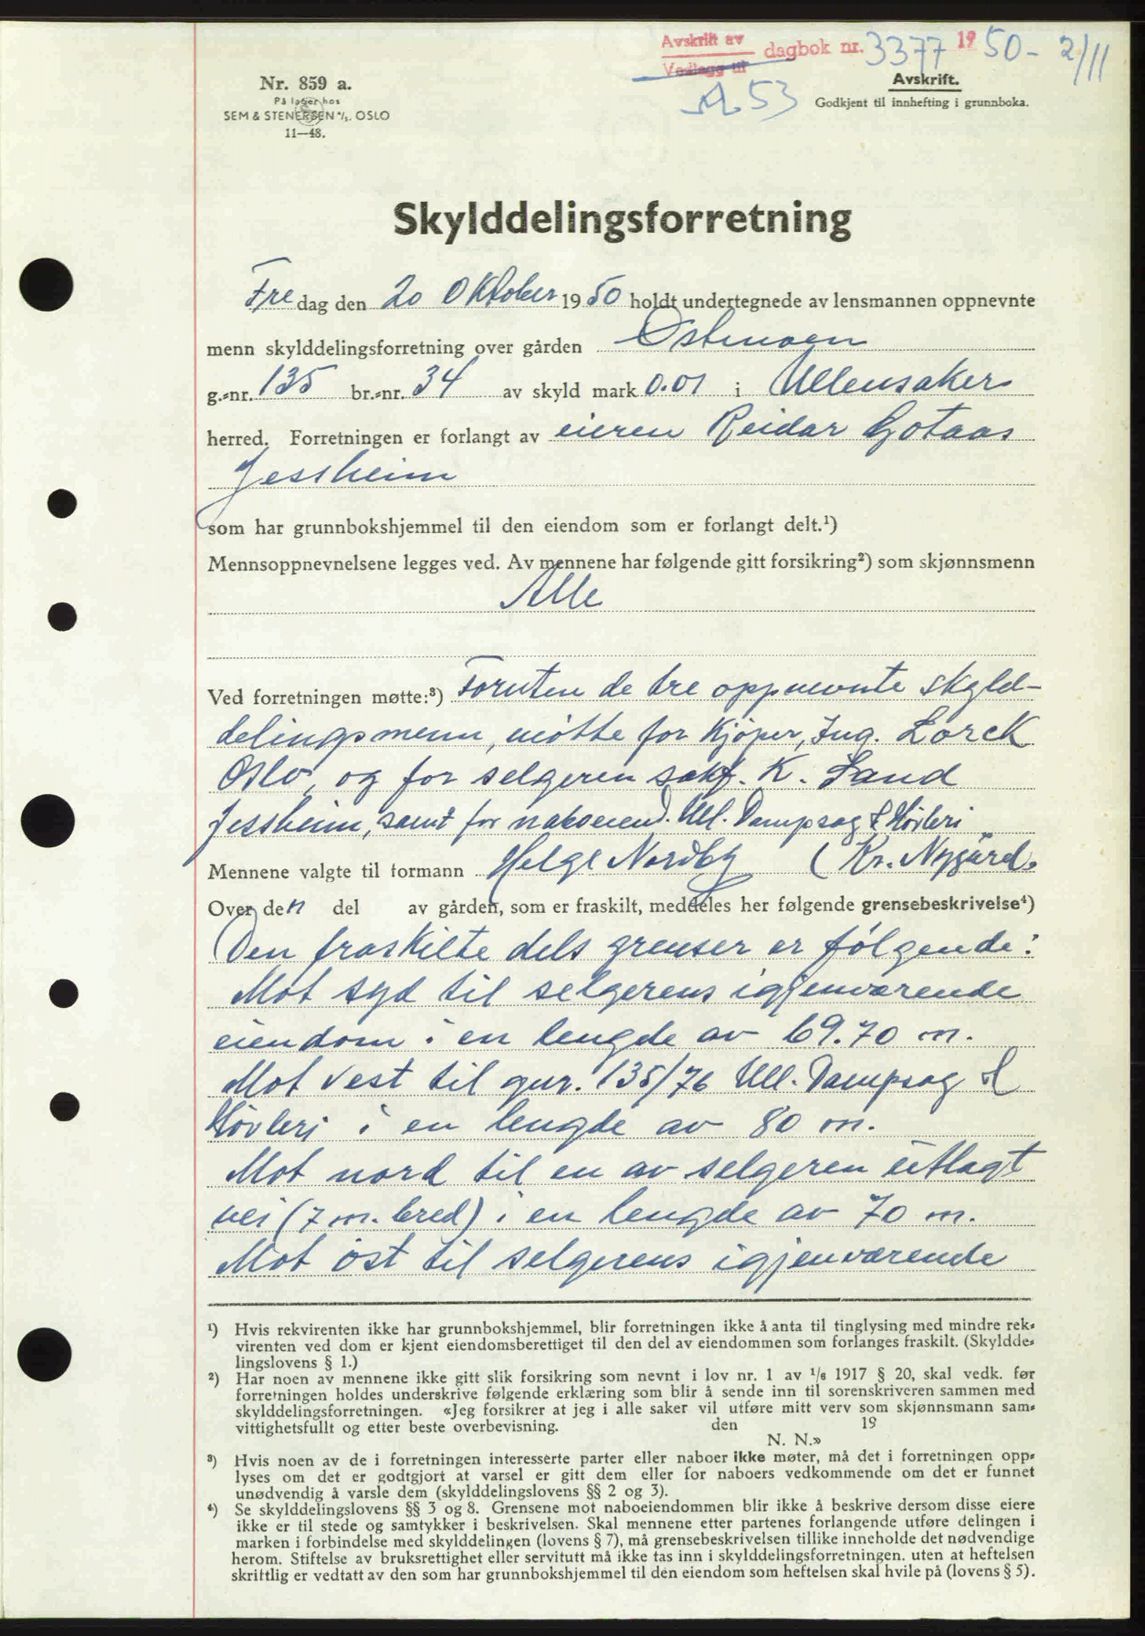 Avskrift av dagbok nr. 3377 1950 - 2/11
Vedlegg til
A 53
Avskrift.
Godkjent til innhefting i grunnboka.
Nr. 859 a.
På lager hos
SEM & STENERSEN A/S. OSLO
11—48.
Skylddelingsforretning
Fredag den 20 Oktober 1950 holdt undertegnede av lensmannen oppnevnte
menn skylddelingsforretning over gården Østmoen
g.-nr. 135 br.-nr. 34 av skyld mark 0.01 i Ullensaker
herred. Forretningen er forlangt av eieren Reidar Gotaas
Jessheim
som har grunnbokshjemmel til den eiendom som er forlangt delt.¹)
Mennsoppnevnelsene legges ved. Av mennene har følgende gitt forsikring²) som skjønnsmenn
Alle
Ved forretningen møtte:³) Foruten de tre oppnevnte skyld-
delingsmenn, møtte for Kjöper, Ing. Lorck
Oslo, og for selgeren sakf. K. Sand
Jessheim, samt for naboeiend. Ull. Dampsag & Høvleri
Mennene valgte til formann Helge Nordby (Kr. Nygård.
Over den del av gården, som er fraskilt, meddeles her følgende grensebeskrivelse⁴)
Den fraskilte dels grenser er følgende:
Mot syd til selgerens igjenværende
eiendom i en lengde av 69.70 m.
Mot vest til gnr. 135/76 Ull. Dampsag &
Høvleri i en lengde av 80 m.
Mot nord til en av selgeren utlagt
vei (7 m. bred) i en lengde av 70 m.
Mot øst til selgerens igjenværende
¹) Hvis rekvirenten ikke har grunnbokshjemmel, blir forretningen ikke å anta til tinglysing med mindre rek-
virenten ved dom er kjent eiendomsberettiget til den del av eiendommen som forlanges fraskilt. (Skyldde-
lingslovens § 1.)
²) Har noen av mennene ikke gitt slik forsikring som nevnt i lov nr. 1 av 1/6 1917 § 20, skal vedk. før
forretningen holdes underskrive følgende erklæring som blir å sende inn til sorenskriveren sammen med
skylddelingsforretningen. «Jeg forsikrer at jeg i alle saker vil utføre mitt verv som skjønnsmann sam-
vittighetsfullt og etter beste overbevisning. den 19
N. N.»
³) Hvis noen av de i forretningen interesserte parter eller naboer ikke møter, må det i forretningen opp-
lyses om det er godtgjort at varsel er gitt dem eller for naboers vedkommende om det er funnet
unødvendig å varsle dem (skylddelingslovens §§ 2 og 3).
⁴) Se skylddelingslovens §§ 3 og 8. Grensene mot naboeiendommen blir ikke å beskrive dersom disse eiere
ikke er til stede og samtykker i beskrivelsen. Skal mennene etter partenes forlangende utføre delingen i
marken i forbindelse med skylddelingen (lovens § 7), må grensebeskrivelsen tillike inneholde det nødvendige
herom. Stiftelse av bruksrettighet eller servitutt må ikke tas inn i skylddelingsforretningen. uten at heftelsen
skriftlig er vedtatt av den som har grunnbokshjemmel til den eiendom som heftelsen skal hvile på (lovens § 5).